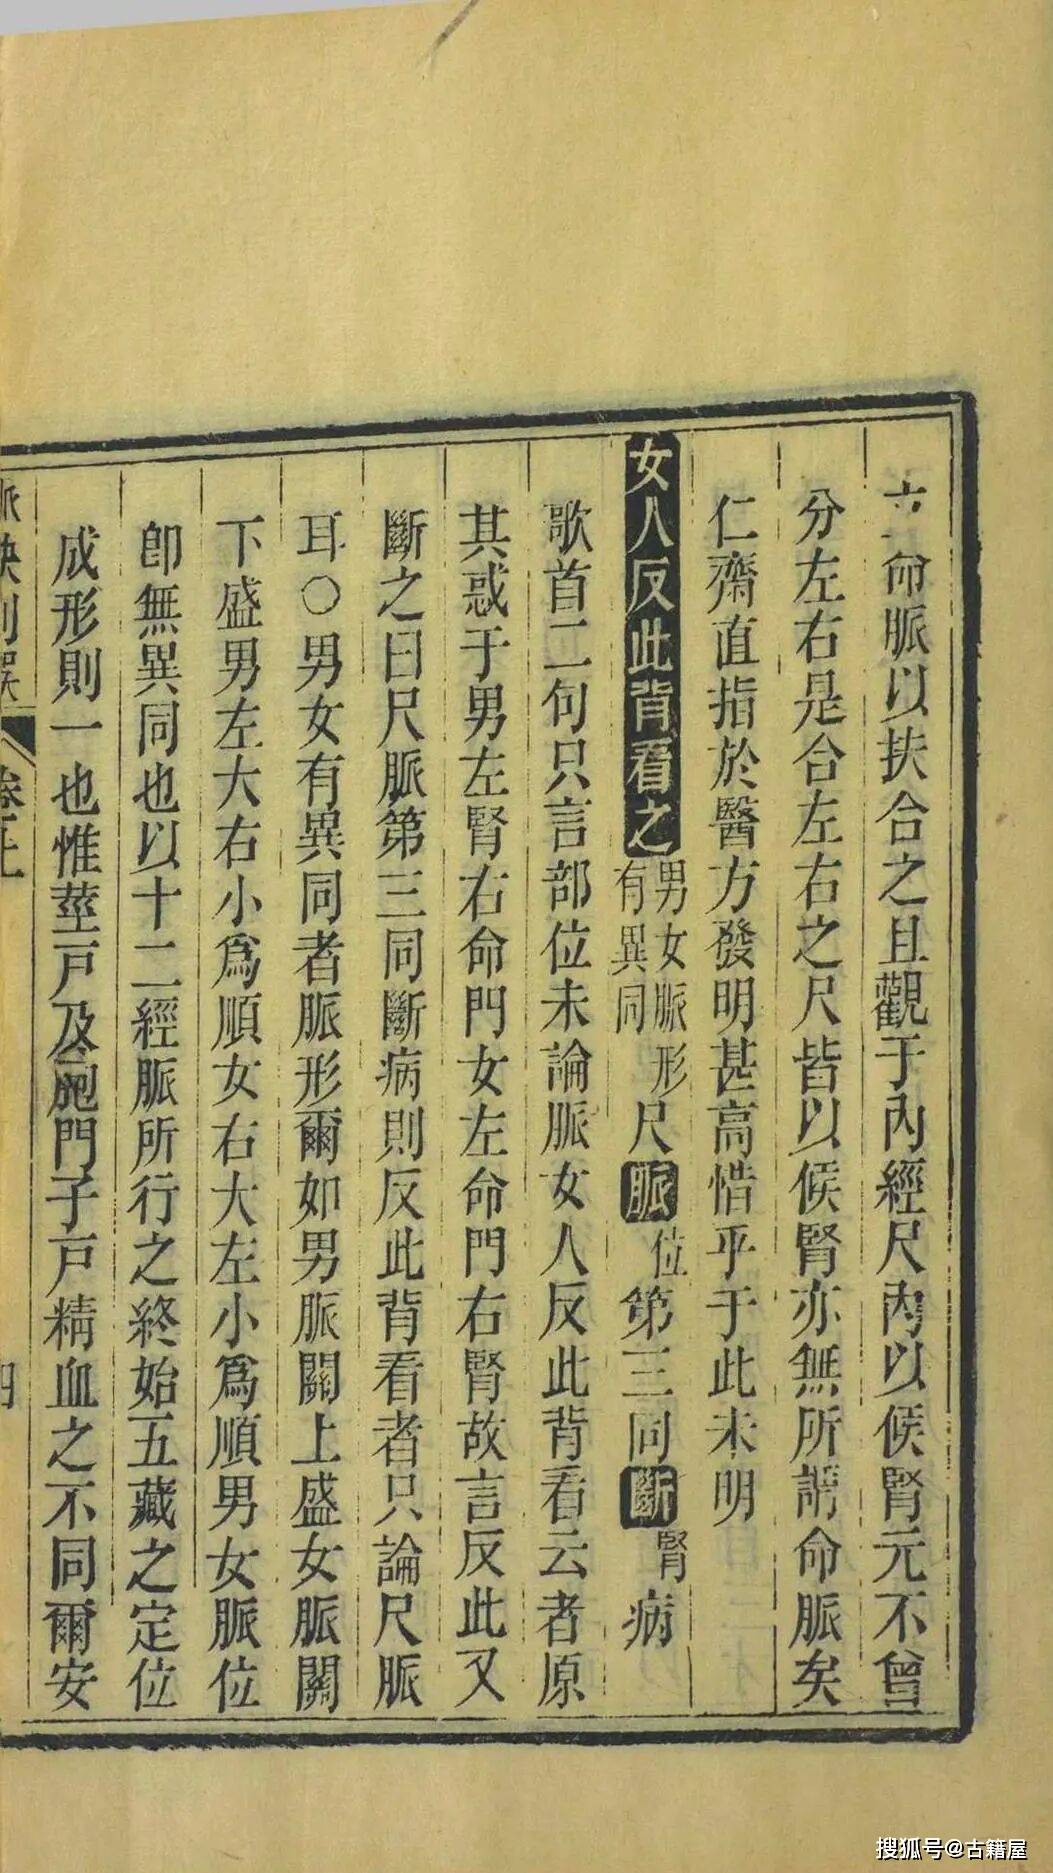 命脈以扶合之且觀于內經尺內以候腎元不曾
分左右是合左右之尺皆以候腎亦無所謂命脈矣
仁齋直指於醫方發明甚高惜乎于此未明
女人反此背看之男女脈形有異同尺脈位第三同斷腎病
歌首二句只言部位未論脈女人反此背看云者原
其惑于男左腎右命門女左命門右腎故言反此又
斷之曰尺脈第三同斷病則反此背看者只論尺脈
耳○男女有異同者脈形爾如男脈關上盛女脈關
下盛男左大右小爲順女右大左小爲順男女脈位
卽無異同也以十二經脈所行之終始五藏之定位
成形則一也惟莖戶及胞門子戶精血之不同爾安
脈訣刊誤 卷上
四
搜狐号@古籍屋